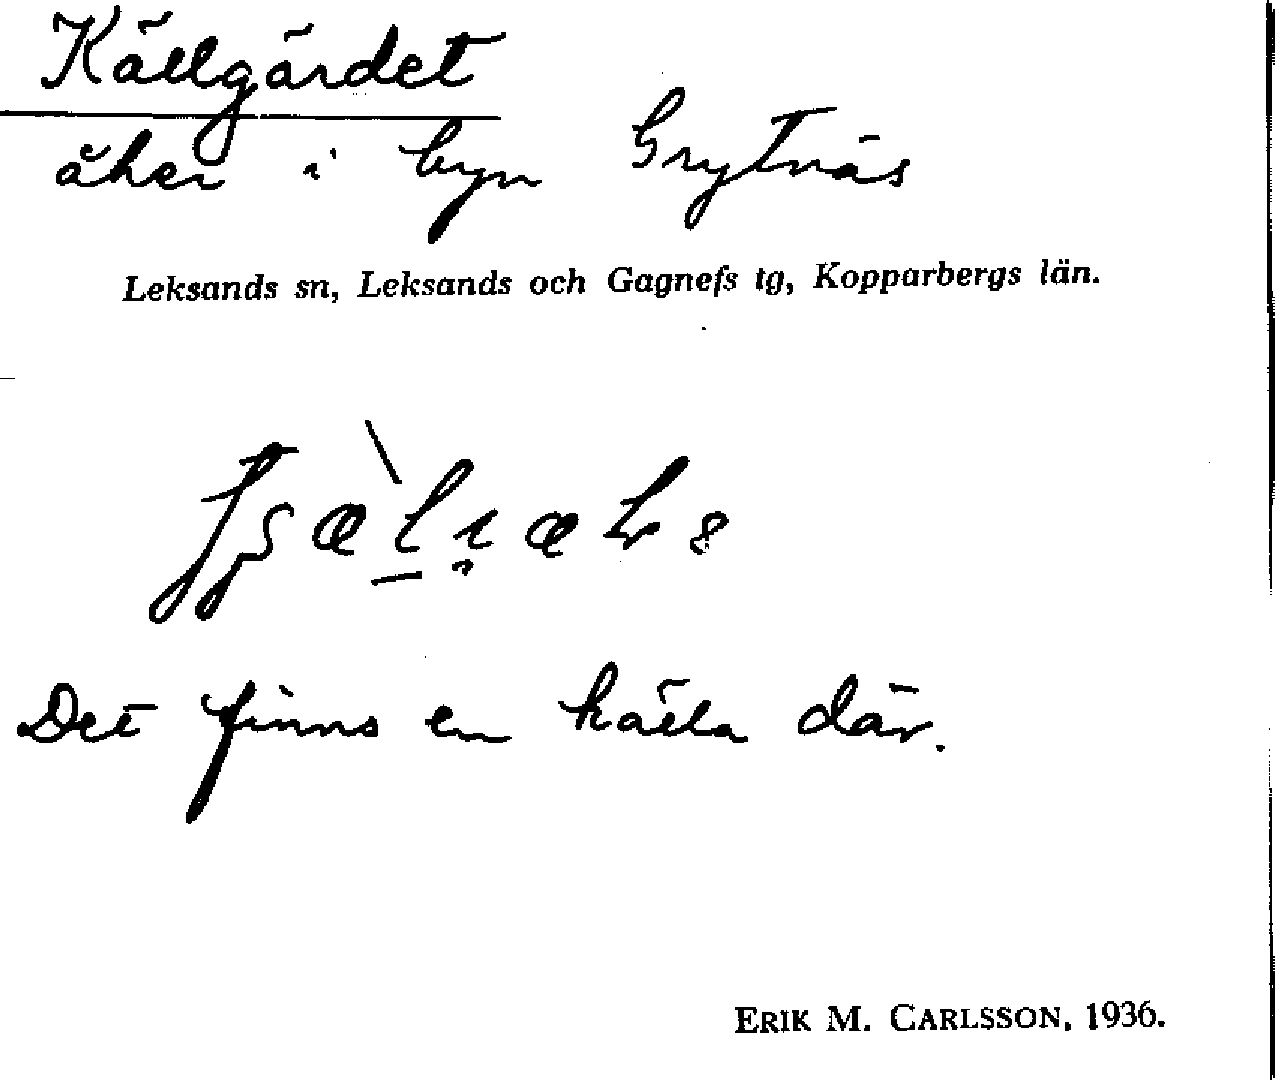 Källgärdet
åker i byn Grytnäs
Leksands sn, Leksands och Gagnefs tg, Kopparbergs län.
Det finns en källa där.
ERIK M. CARLSSON, 1936.